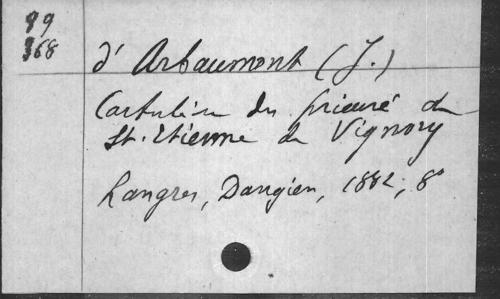 99
368
d'Arbaumont (J.)
Cartulaire du prieuré de
St. Etienne de Vignory
Langres, Dangien, 1882, 8°